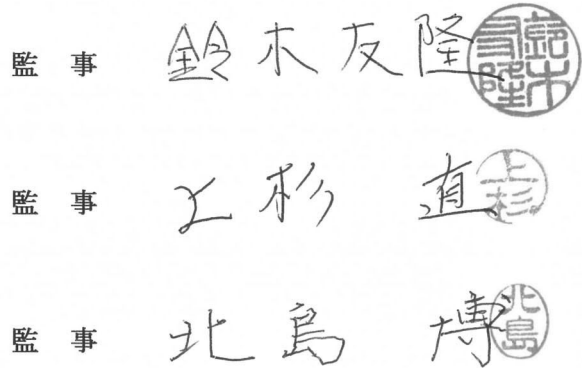 監事 鈴木友隆 鈴木友隆
監事 上杉 直 上杉
監事 北島 博 北島